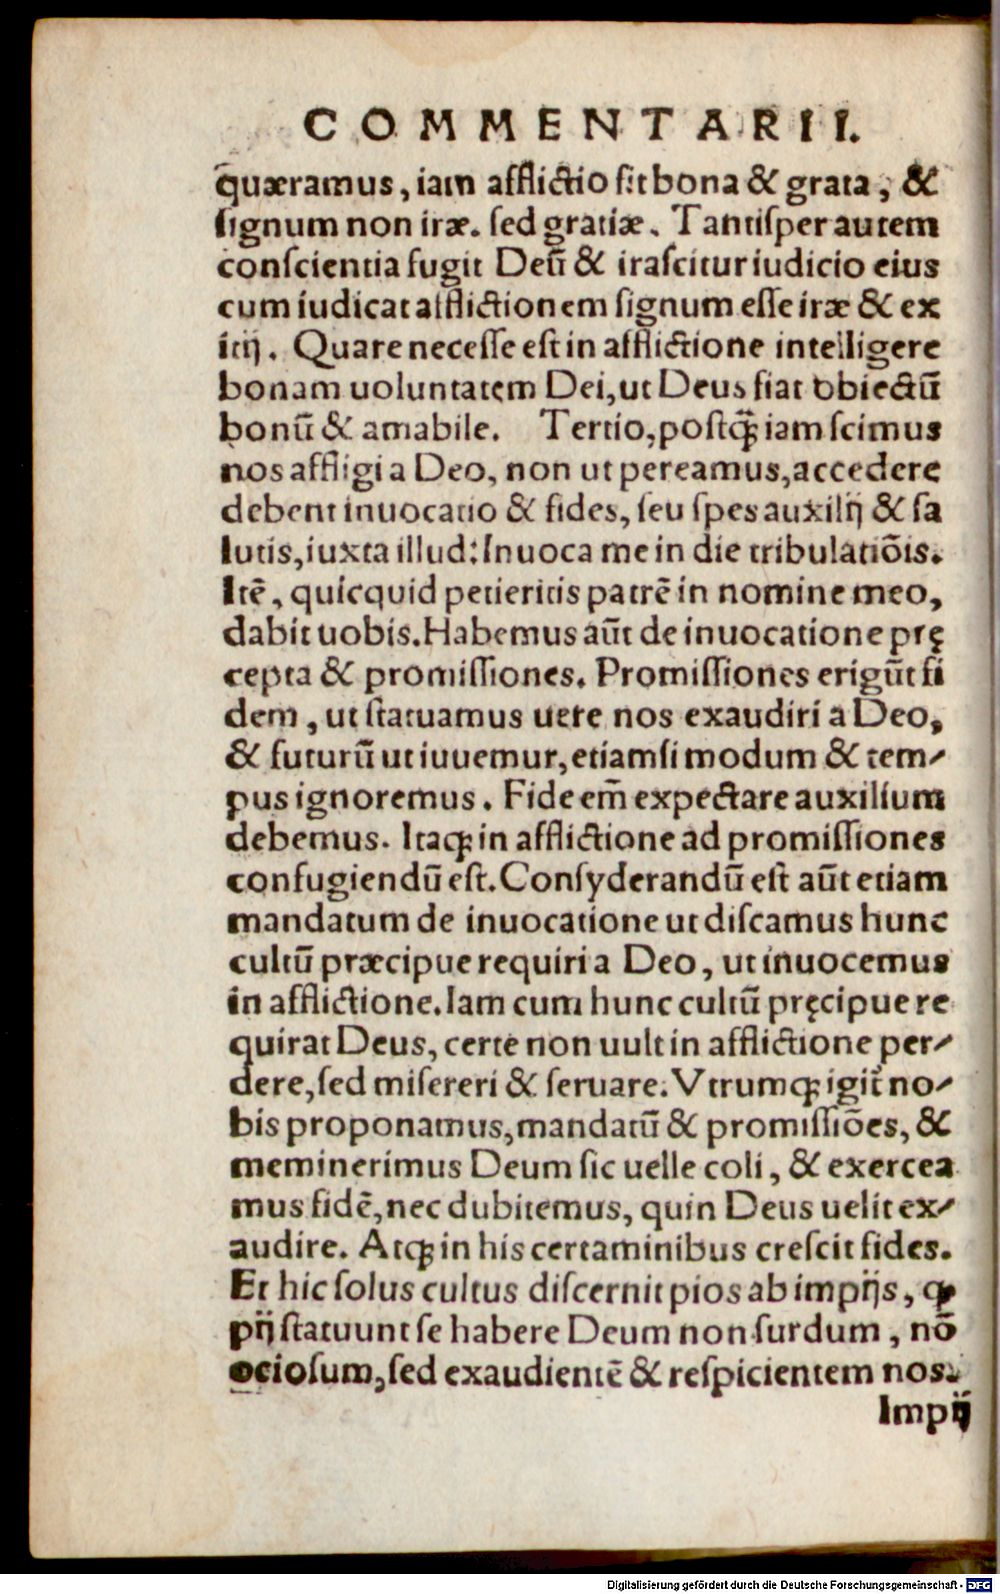 COMMENTARII.
quæramus, iam afflictio sit bona & grata, &
signum non iræ. sed gratiæ. Tantisper autem
conscientia fugit Deũ & irascitur iudicio eius
cum iudicat afflictionem signum esse iræ & ex
itij. Quare necesse est in afflictione intelligere
bonam uoluntatem Dei, ut Deus fiat obiectũ
bonũ & amabile. Tertio, postq̃ iam scimus
nos affligi a Deo, non ut pereamus, accedere
debent inuocatio & fides, seu spes auxilij & sa
lutis, iuxta illud: Inuoca me in die tribulatiõis.
Itẽ, quicquid petieritis patrẽ in nomine meo,
dabit uobis. Habemus aũt de inuocatione prę
cepta & promissiones. Promissiones erigũt fi
dem, ut statuamus uere nos exaudiri a Deo,
& futurũ ut iuuemur, etiamsi modum & tem-
pus ignoremus. Fide em̃ expectare auxilium
debemus. Itaq; in afflictione ad promissiones
confugiendũ est. Consyderandũ est aũt etiam
mandatum de inuocatione ut discamus hunc
cultũ præcipue requiri a Deo, ut inuocemus
in afflictione. Iam cum hunc cultũ pręcipue re
quirat Deus, certe non uult in afflictione per-
dere, sed misereri & seruare. Vtrumq; igit̃ no-
bis proponamus, mandatũ & promissiões, &
meminerimus Deum sic uelle coli, & exercea
mus fidẽ, nec dubitemus, quin Deus uelit ex-
audire. Atq; in his certaminibus crescit fides.
Et hic solus cultus discernit pios ab impijs, ꝙ
pij statuunt se habere Deum non surdum, nõ
ociosum, sed exaudientẽ & respicientem nos.
Impij
Digitalisierung gefördert durch die Deutsche Forschungsgemeinschaft - DFG